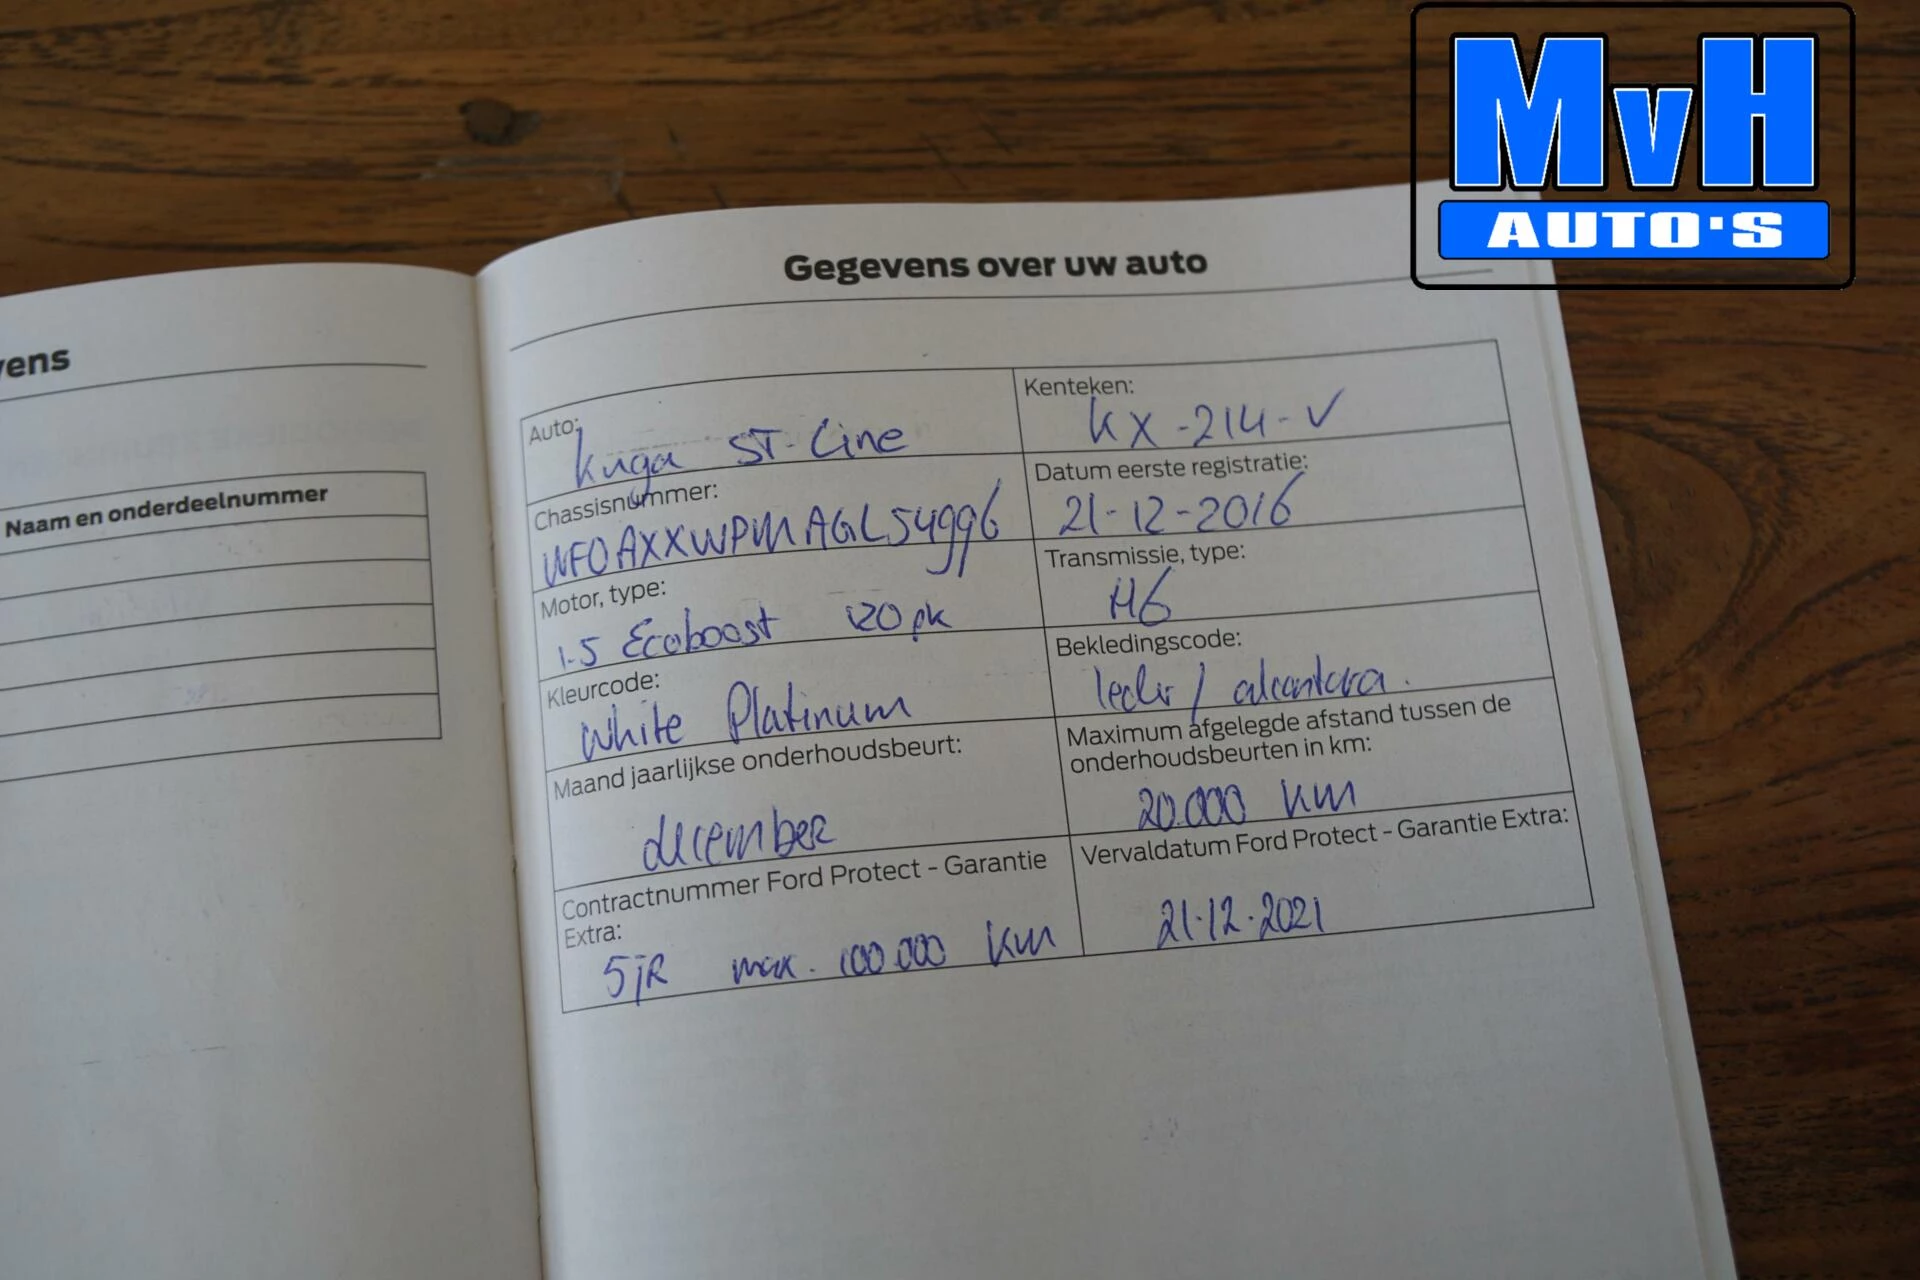 MvH
AUTO'S
vens
Naam en onderdeelnummer
Gegevens over uw auto
Auto:
Kuga ST-Line
Kenteken:
KX-214-V
Chassisnummer:
WF0AXXWPMAGL54996
Datum eerste registratie:
21-12-2016
Motor, type:
1.5 Ecoboost 120 pk
Transmissie, type:
H6
Kleurcode:
White Platinum
Bekledingscode:
leder / alcantara.
Maand jaarlijkse onderhoudsbeurt:
december
Maximum afgelegde afstand tussen de
onderhoudsbeurten in km:
20.000 km
Contractnummer Ford Protect - Garantie
Extra:
5 JR max. 100.000 km
Vervaldatum Ford Protect - Garantie Extra:
21-12-2021